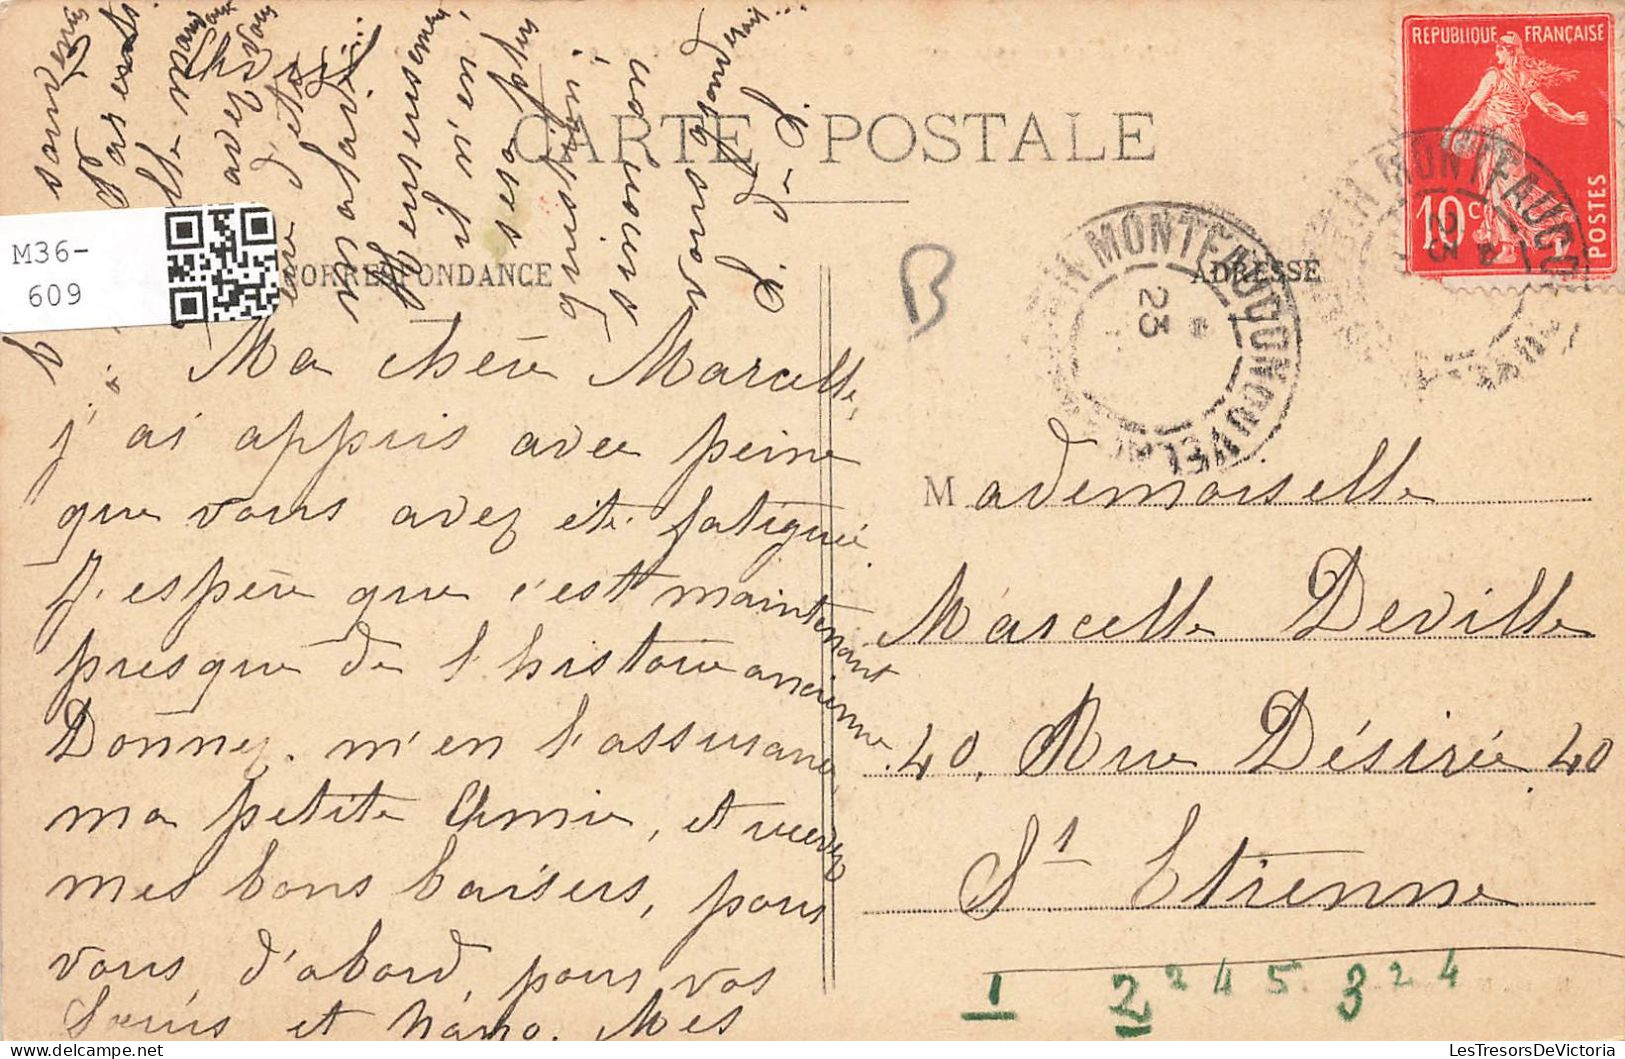 CARTE POSTALE
CORRESPONDANCE
ADRESSE
M36-
609
REPUBLIQUE FRANÇAISE
10c
POSTES
MONTFAUCON
23
MONTFAUCON
23
B
Ma chère Marcelle,
j'ai appris avec peine
que vous avez été fatiguée
J'espère que c'est maintenant
presque de l'histoire ancienne
Donnez m'en l'assurance,
ma petite Amie, et recevez
mes bons baisers, pour
vous, d'abord, pour vos
Sœurs et Nano. Mes
souvenirs
avec vous
malavie...
Heureusement
il n'est
sera plus
question
Mademoiselle
Marcelle Deville
40, Rue Désirée 40
St Etienne
1 2 2 4 5 3 2 4
LesTresorsDeVictoria